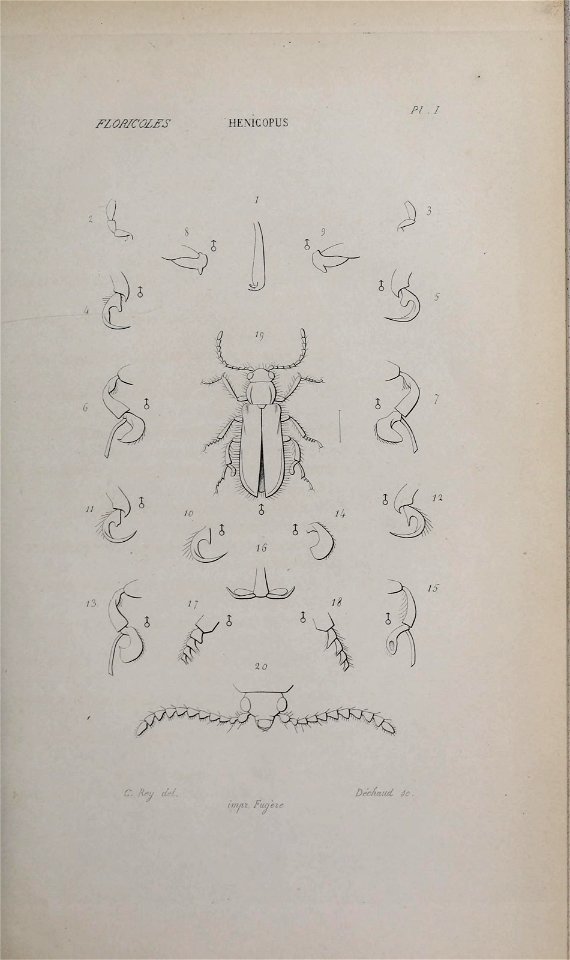 Pl. I
FLORICOLES HENICOPUS
1
2 3
8 9
4 5
19
6 7
11 12
10 14
16
13 15
17 18
20
C. Rey del. Déchaud sc.
impr. Fugère